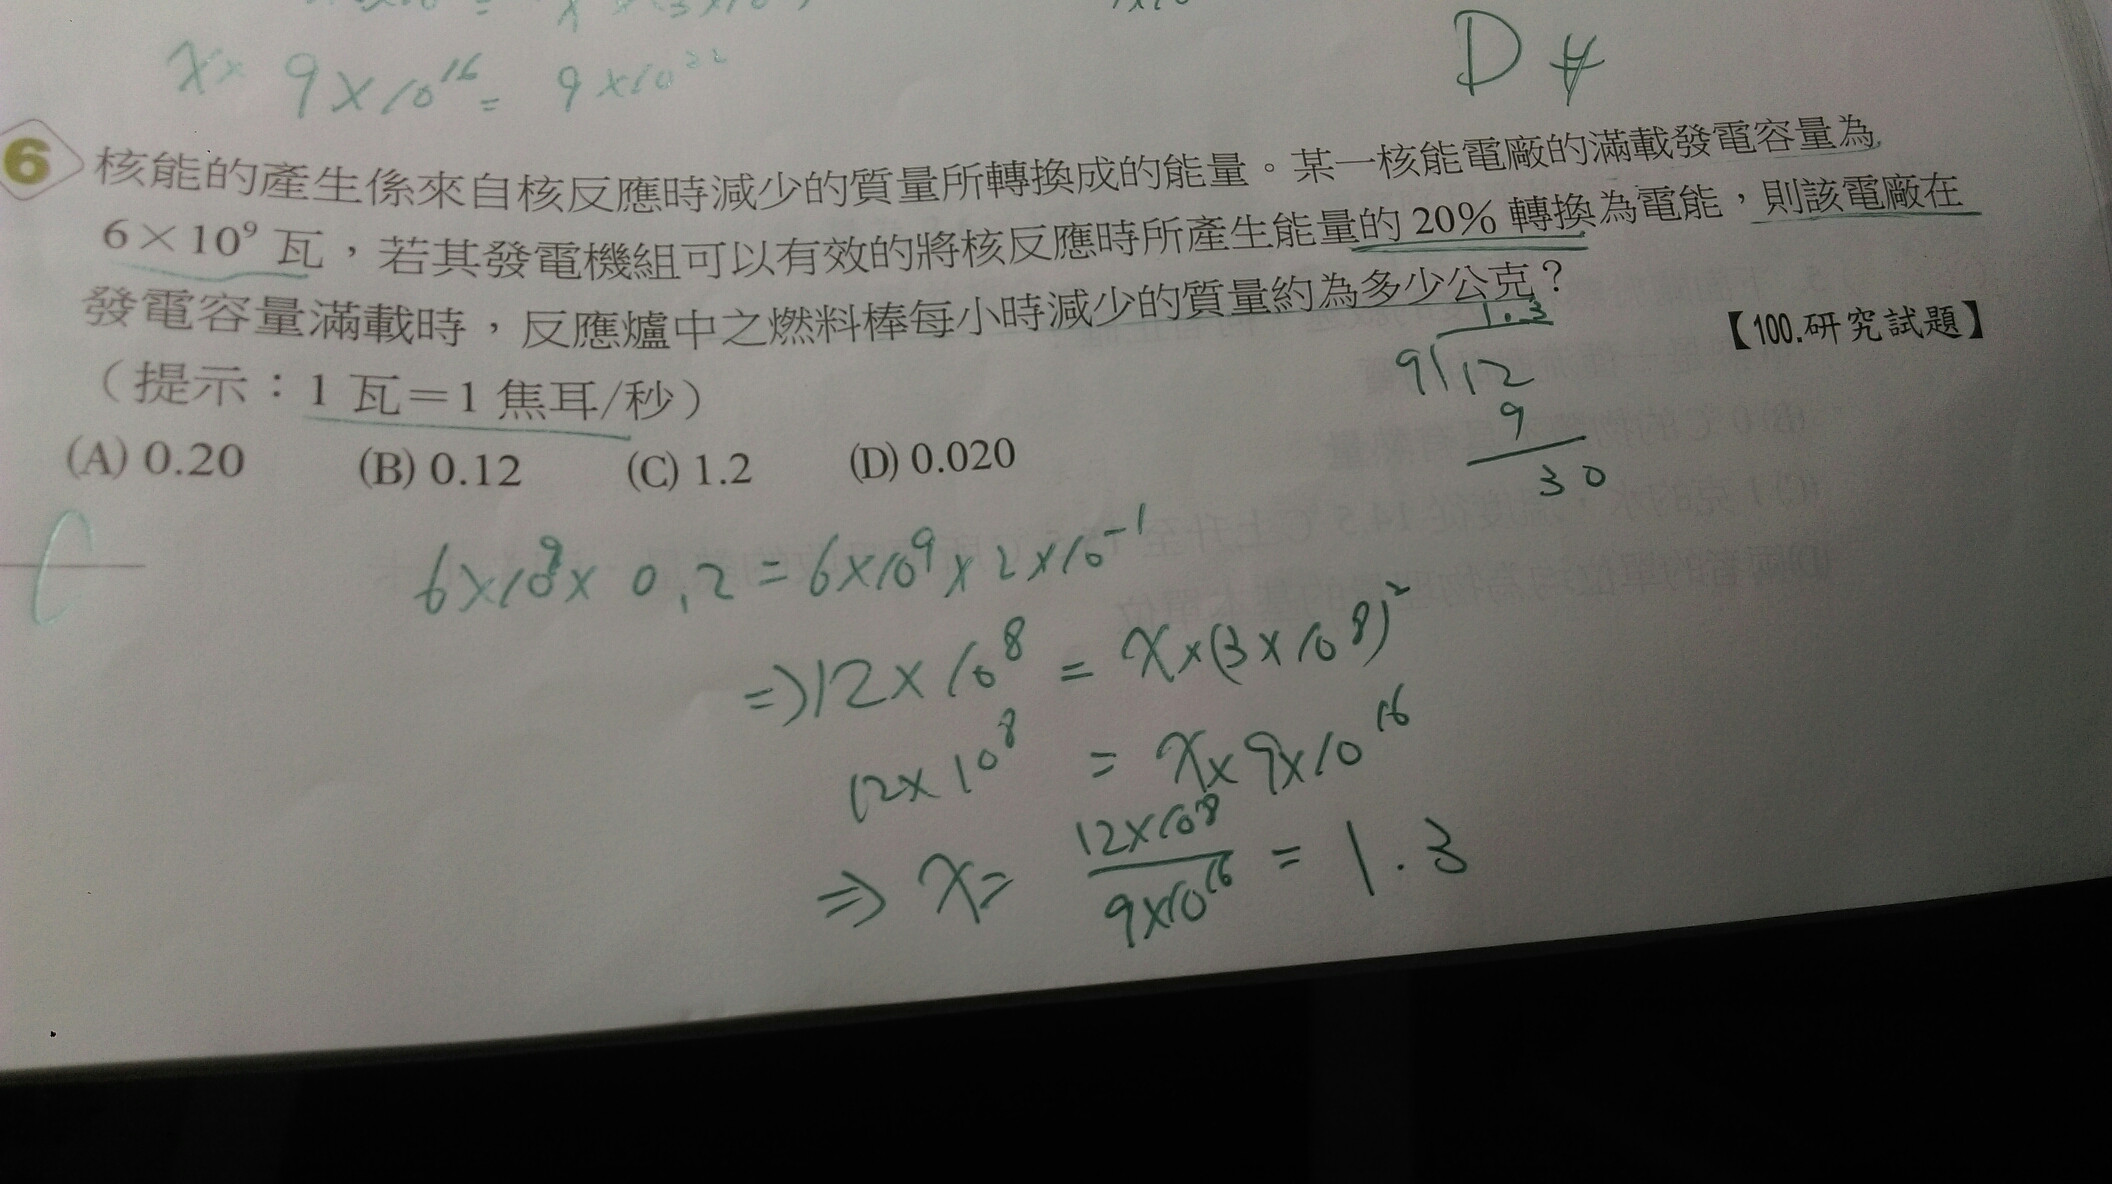 x× 9×10¹⁶ = 9×10²²
D #
6 核能的產生係來自核反應時減少的質量所轉換成的能量。某一核能電廠的滿載發電容量為
6×10⁹ 瓦，若其發電機組可以有效的將核反應時所產生能量的 20% 轉換為電能，則該電廠在
發電容量滿載時，反應爐中之燃料棒每小時減少的質量約為多少公克？
【100.研究試題】
（提示：1 瓦＝1 焦耳/秒）
1.3
9 12
9
30
(A) 0.20 (B) 0.12 (C) 1.2 (D) 0.020
C
6×10⁹× 0.2 = 6×10⁹×2×10⁻¹
⇒12×10⁸ = x×(3×10⁸)²
12×10⁸ = x×9×10¹⁶
⇒ x= 12×10⁸/9×10¹⁶ = 1.3